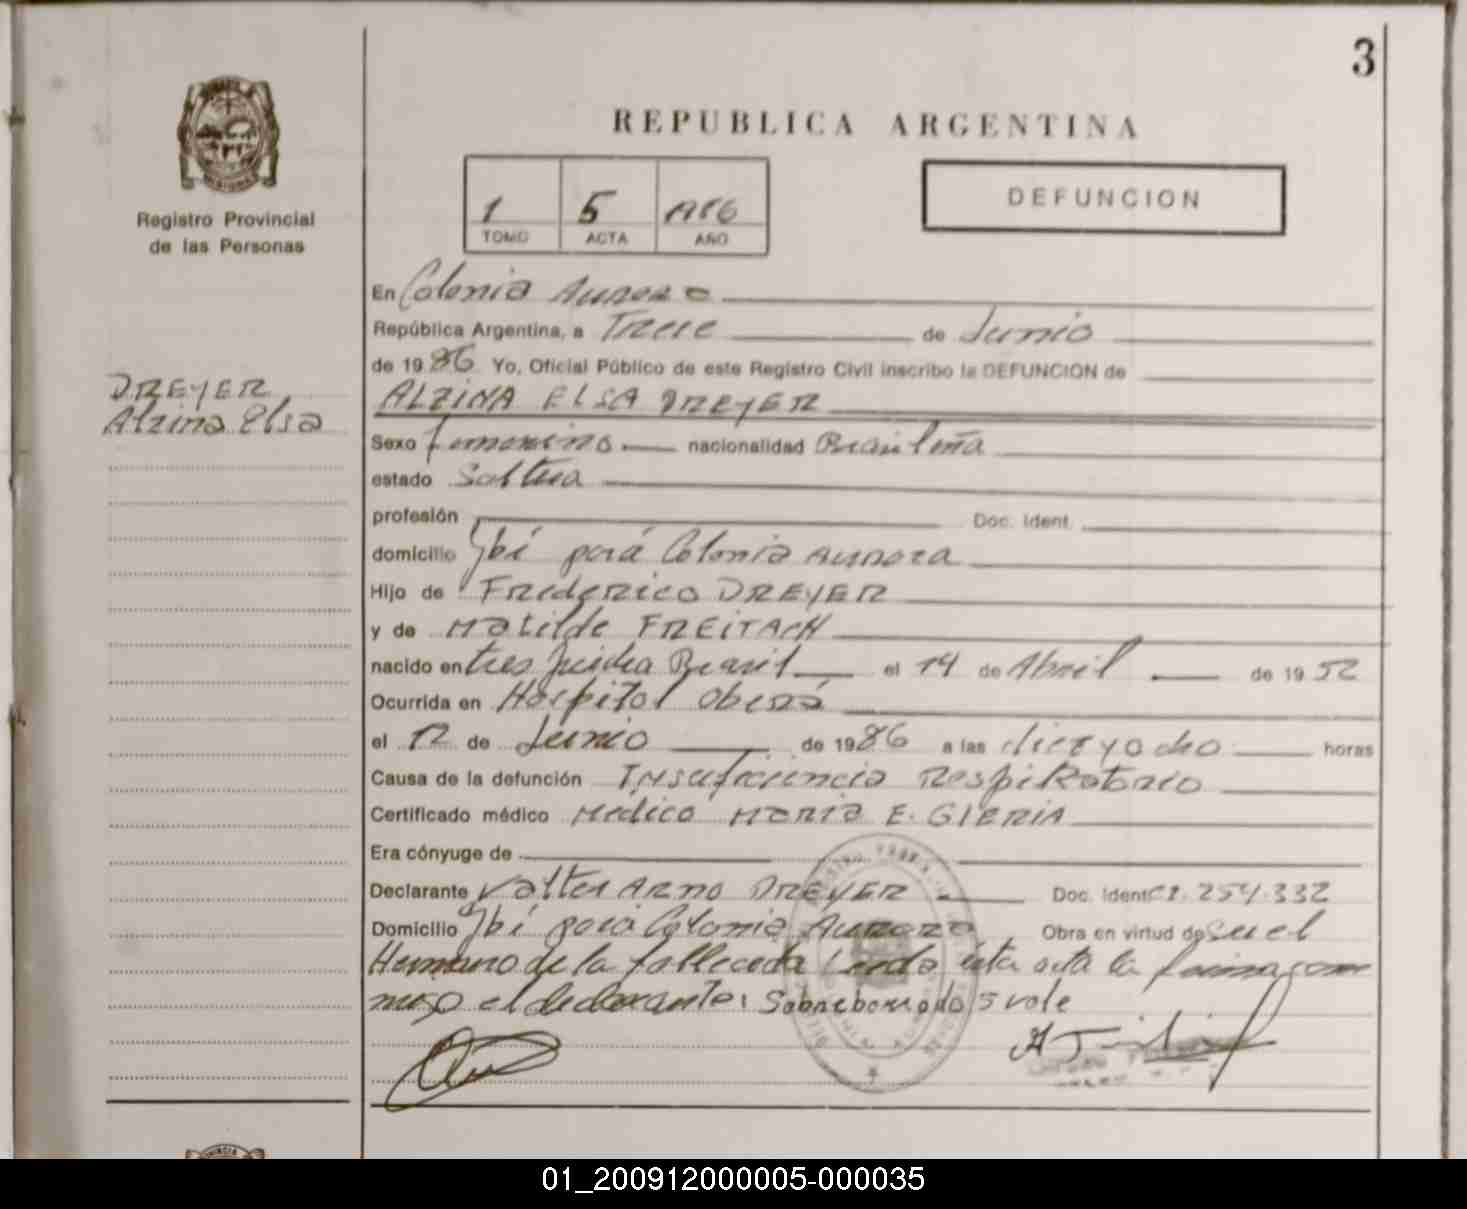 3
REPUBLICA ARGENTINA
Registro Provincial
de las Personas
1 5 1986
TOMO ACTA AÑO
DEFUNCION
DREYER
Alzina Elsa
En Colonia Aurora
República Argentina, a Trece de Junio
de 1986 Yo, Oficial Público de este Registro Civil inscribo la DEFUNCION de
ALZINA ELSA DREYER
Sexo femenino nacionalidad Brasileña
estado Soltera
profesión Doc. Ident.
domicilio Ybí pará Colonia Aurora
Hijo de Frederico DREYER
y de Matilde FREITACH
nacido en tres Brasil el 14 de Abril de 1952
Ocurrida en Hospital Oberá
el 12 de Junio de 1986 a las diez y ocho horas
Causa de la defunción Insuficiencia Respiratorio
Certificado médico Medico Maria E. GIERIA
Era cónyuge de
Declarante Valter ARNO DREYER Doc. Ident CI. 254.332
Domicilio Ybí pará Colonia Aurora Obra en virtud de ser el
Hermano de la fallecida Leida esta acta la firma con
migo el declarante: Sobreborrado 5 vale
01_200912000005-000035